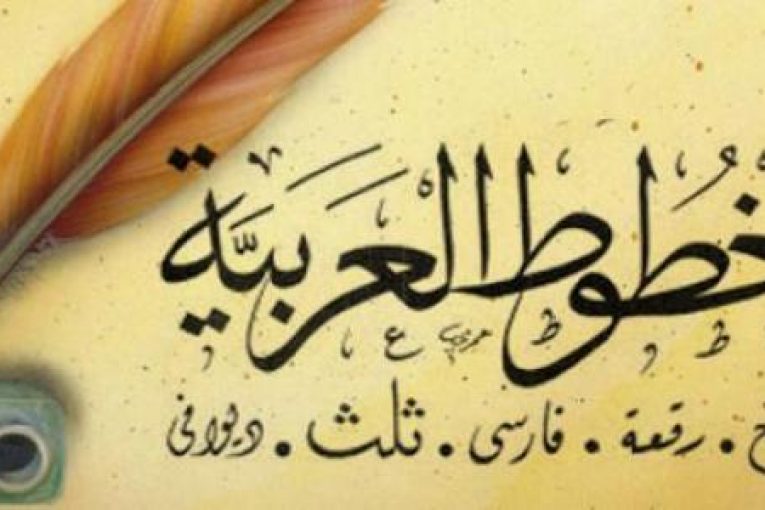 خطوط العربية
رقعة . فارسى . ثلث . ديوانى